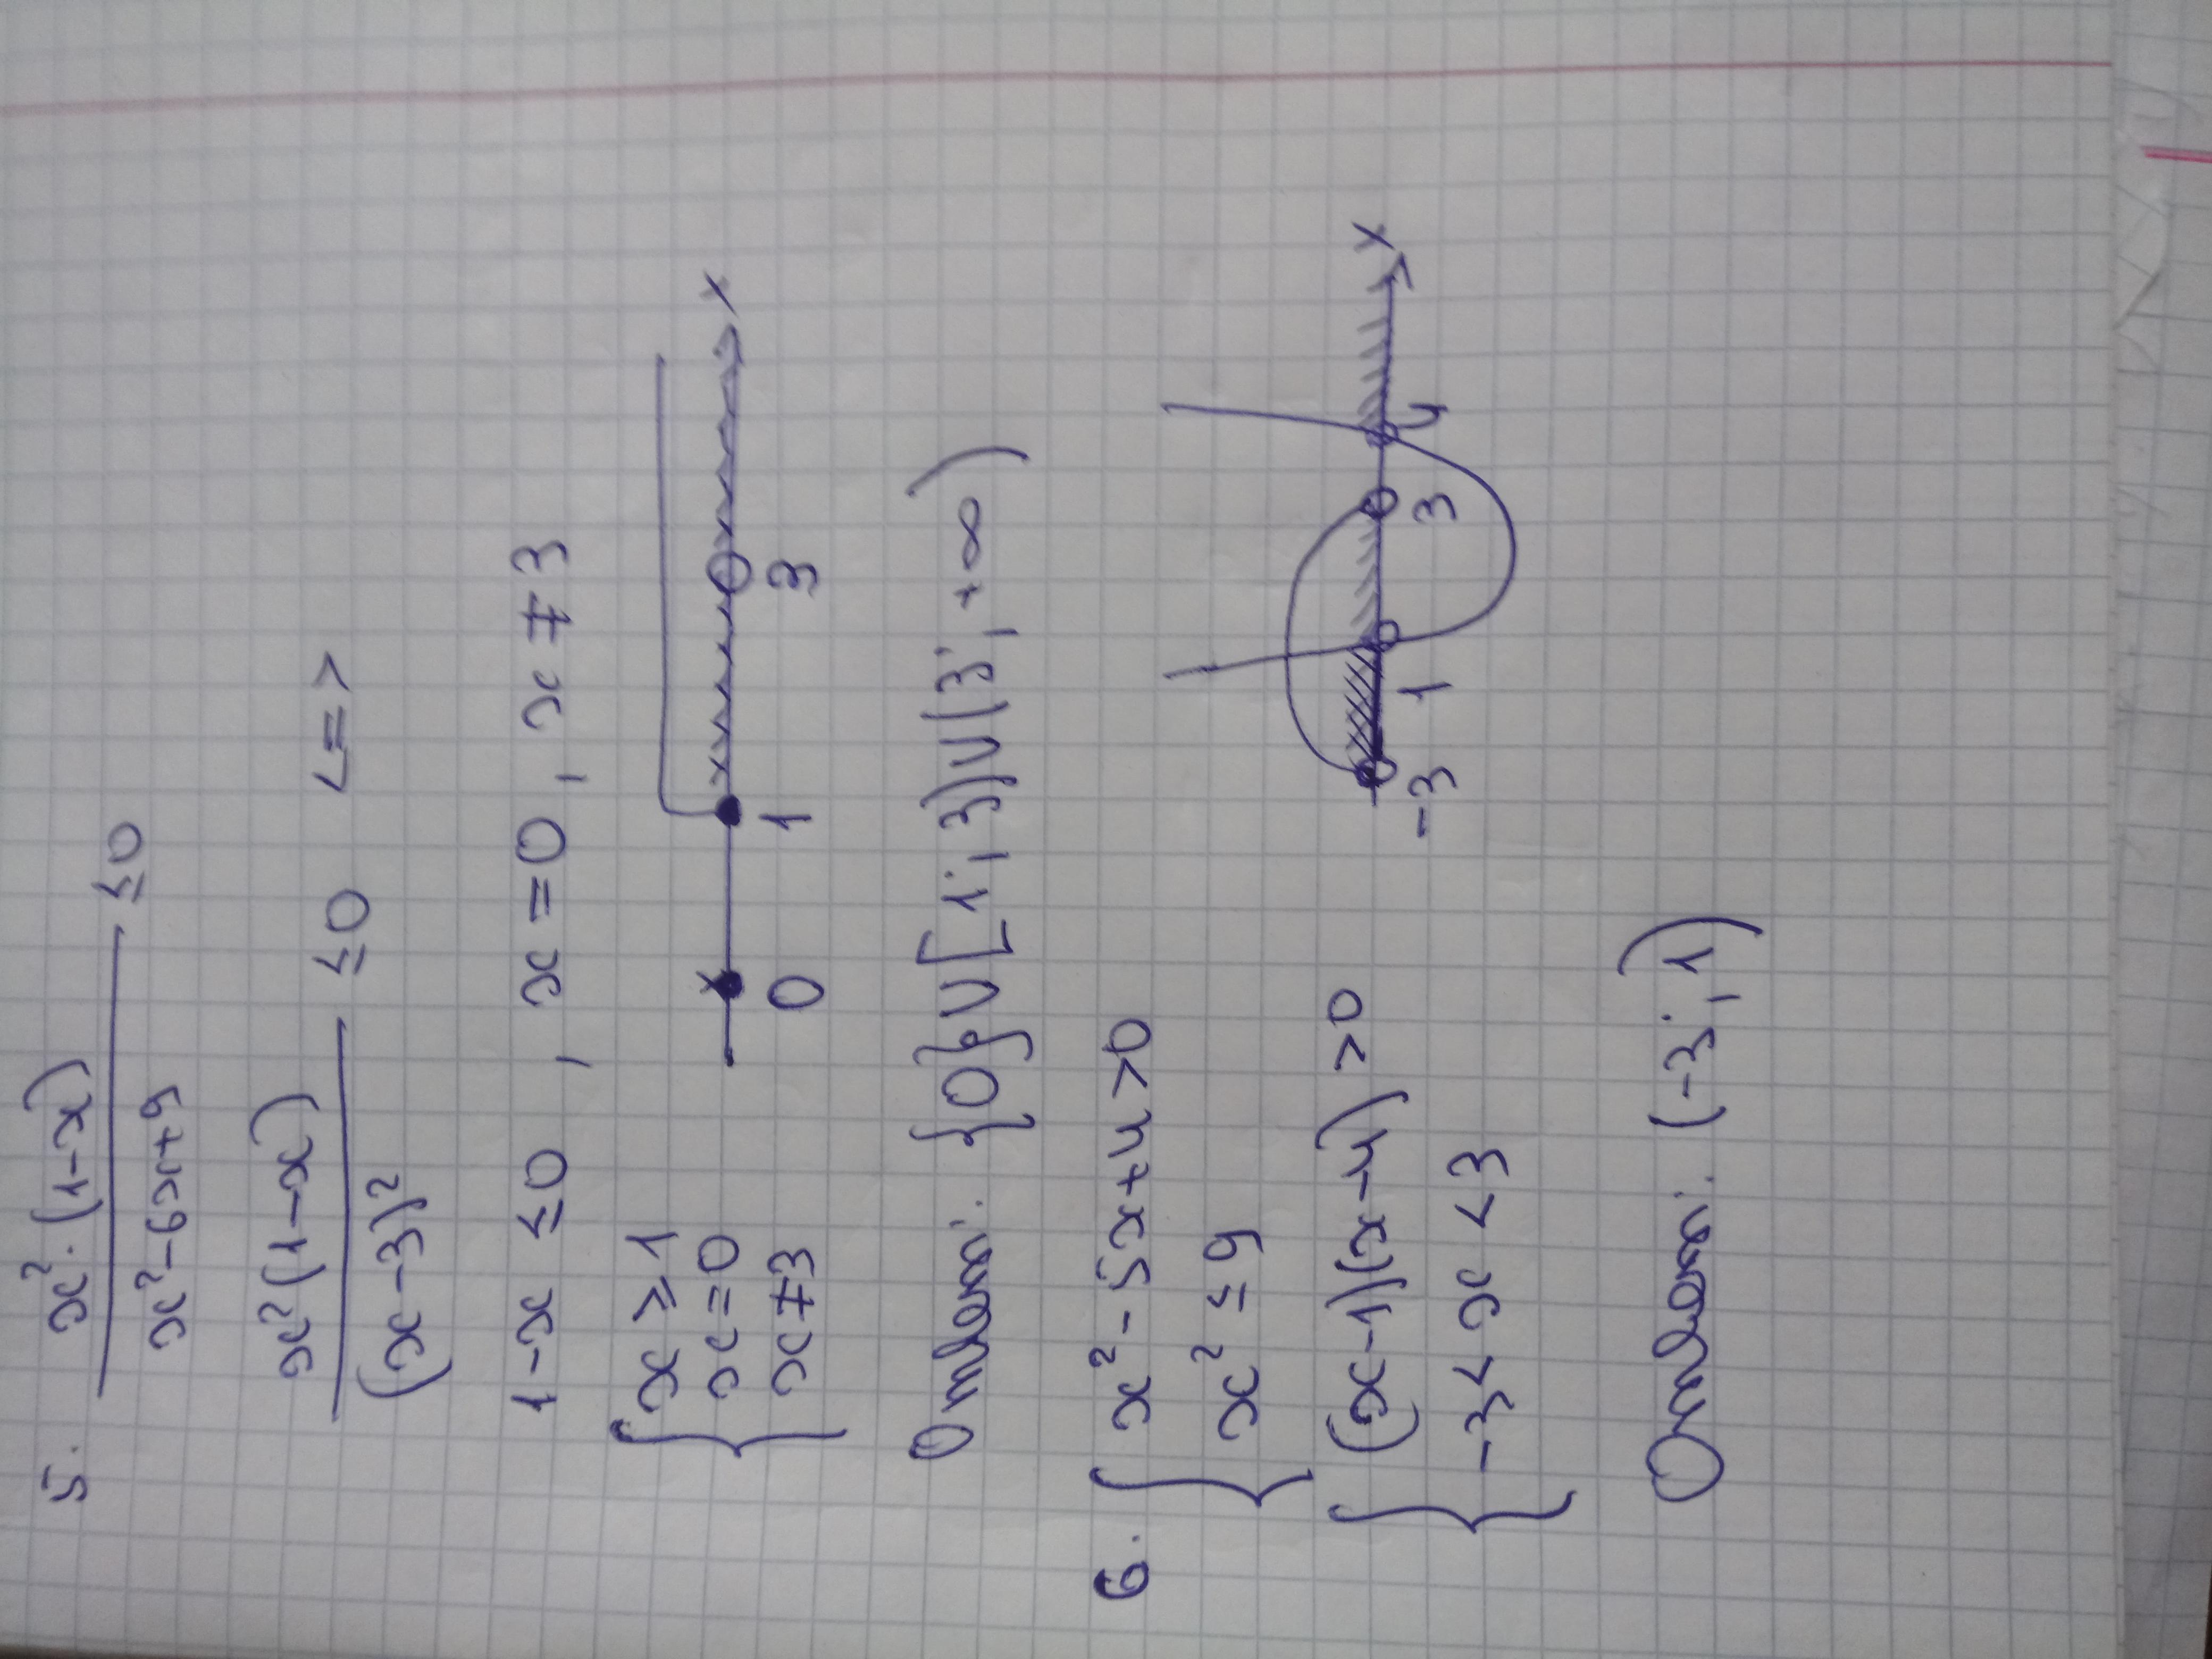 5. x²·(1-x) / x²-6x+9 ≤0
x²(1-x) / (x-3)² ≤0 <=>
1-x ≤0 , x=0 , x≠3
{ x≥1
x=0
x≠3
0 1 3 x
Ответ: {0}∪[1;3)∪(3;+∞)
6. { x²-5x+4>0
x²≤9
{ (x-1)(x-4)>0
-3<x<3
-3 1 3 4 x
Ответ: (-3;1)